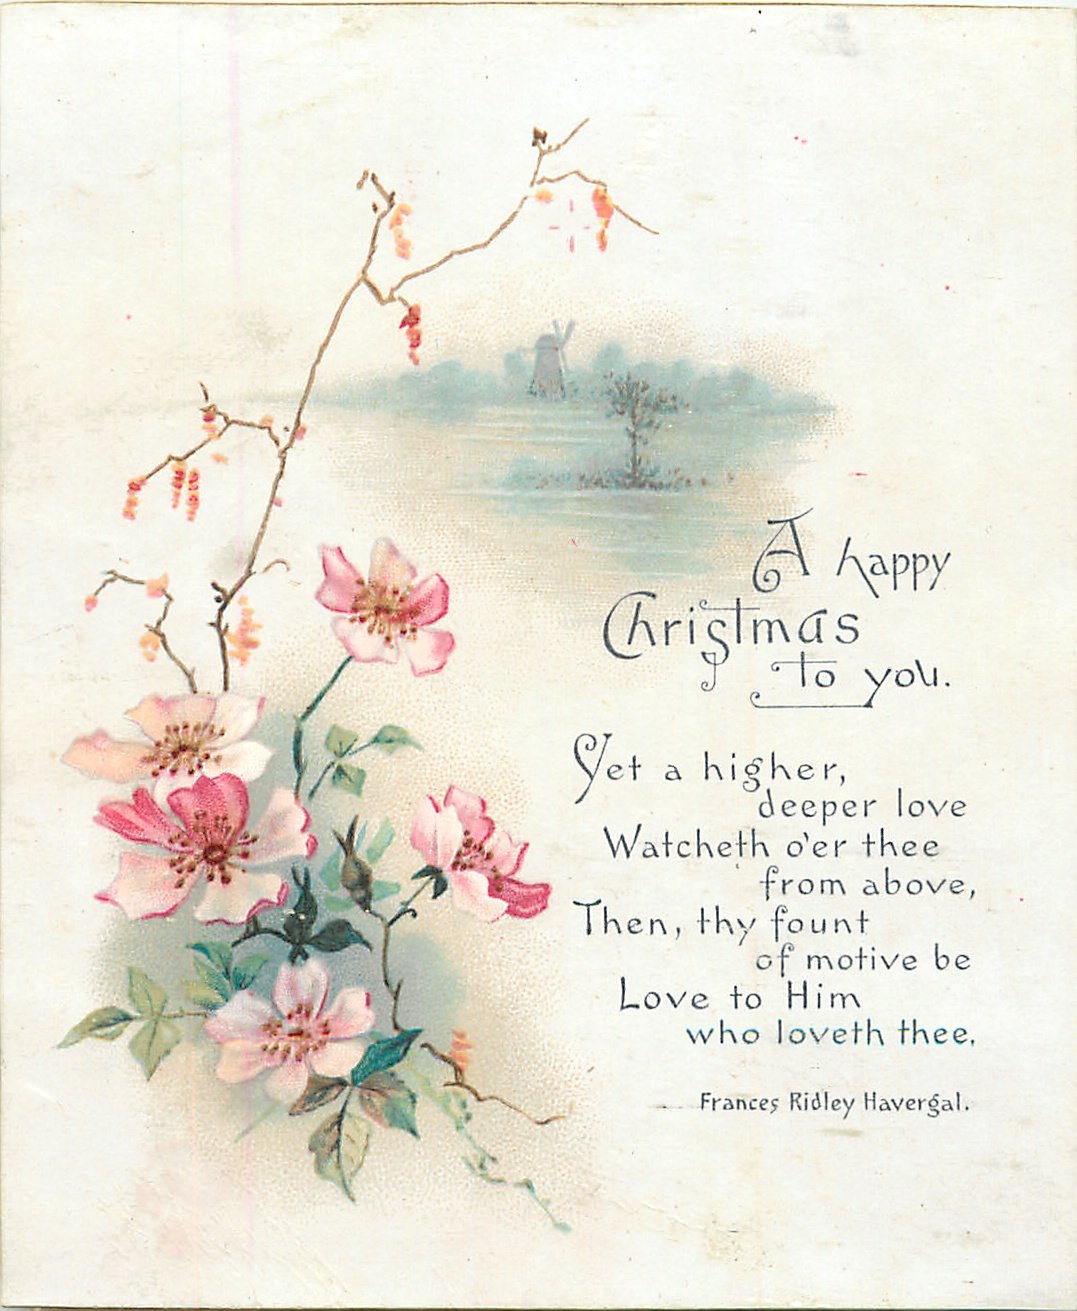 A happy
Christmas
to you.
Yet a higher,
deeper love
Watcheth o'er thee
from above,
Then, thy fount
of motive be
Love to Him
who loveth thee.
Frances Ridley Havergal.